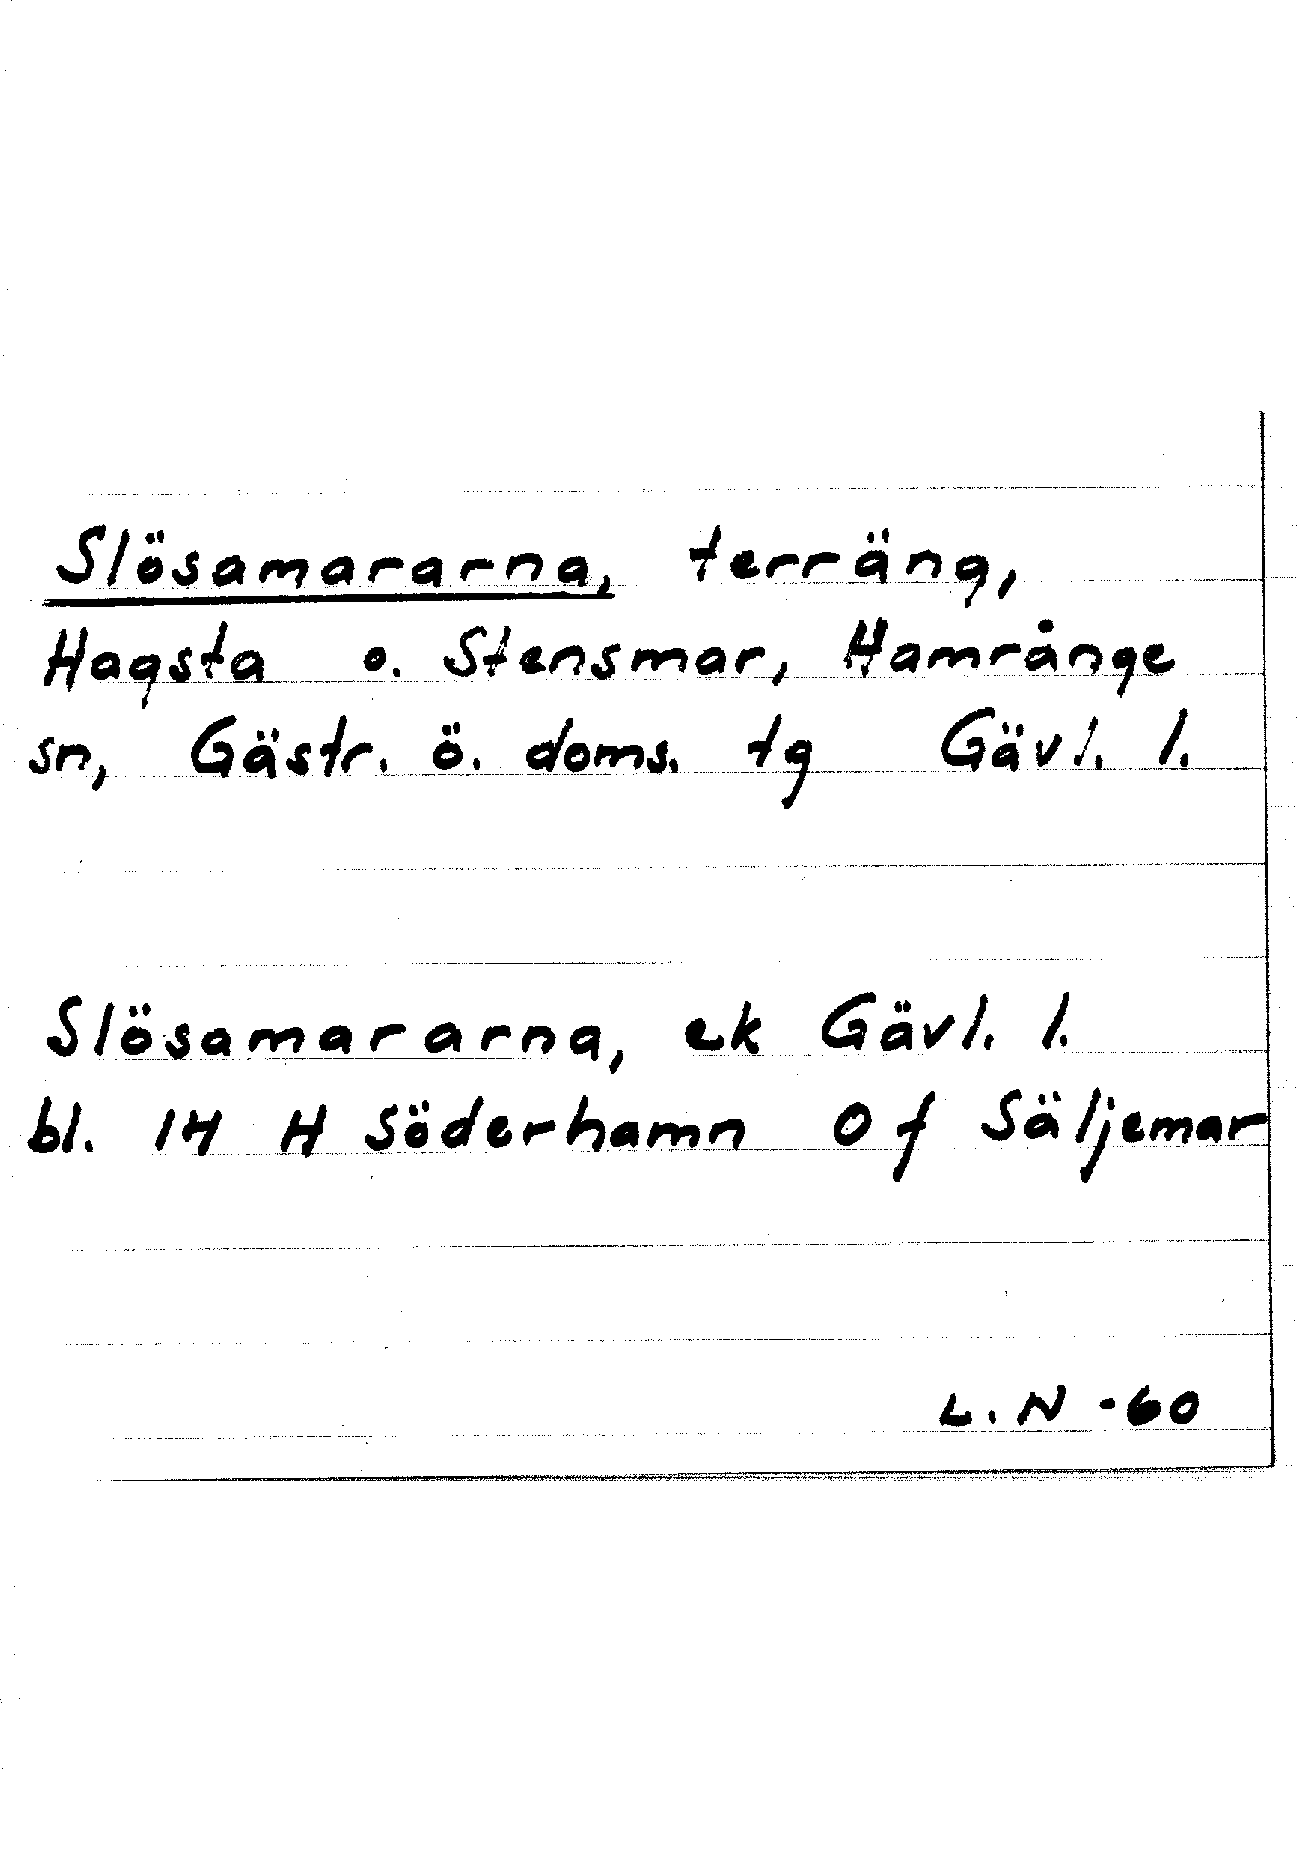 Slösamararna, terräng,
Hagsta o. Stensmar, Hamrånge
sn, Gästr. ö. doms. tg Gävl. l.
Slösamararna, ek Gävl. l.
bl. 14 H Söderhamn 0 f Säljemar
L. N -60